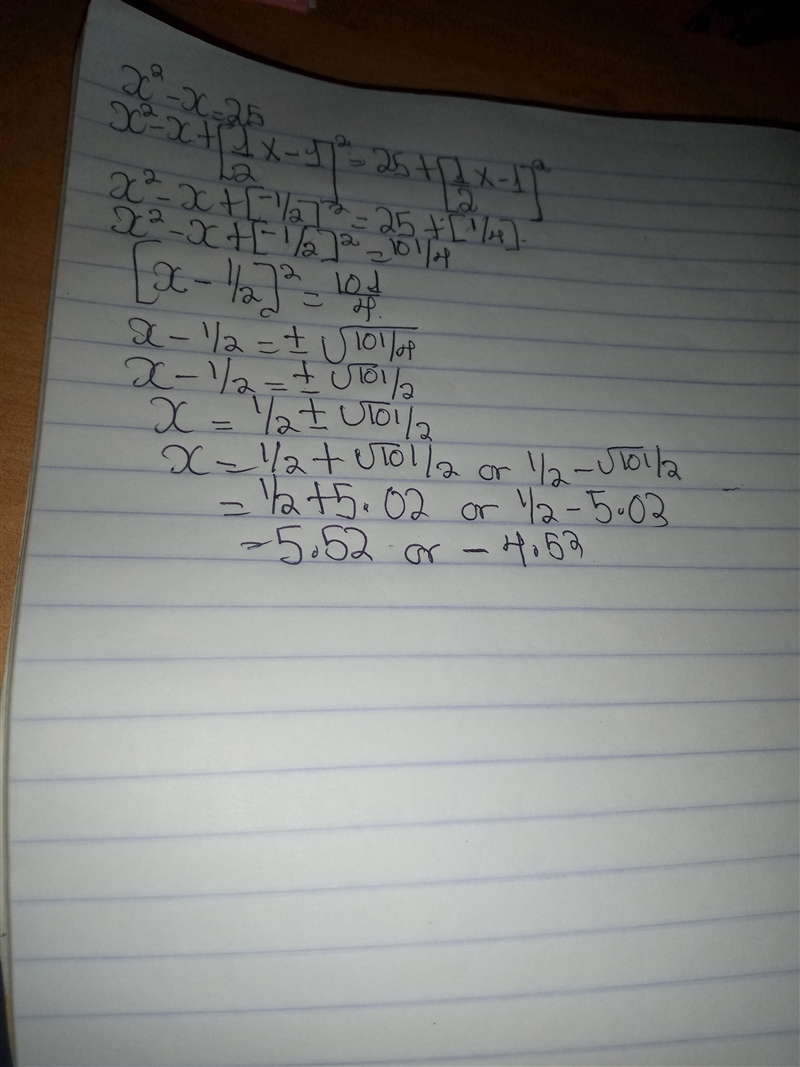 x² - x = 25
x² - x + [1/2 x - 1]² = 25 + [1/2 x - 1]²
x² - x + [-1/2]² = 25 + [1/4].
x² - x + [-1/2]² = 101/4
[x - 1/2]² = 101/4.
x - 1/2 = ± √101/4
x - 1/2 = ± √101/2
x = 1/2 ± √101/2
x = 1/2 + √101/2 or 1/2 - √101/2
= 1/2 + 5.02 or 1/2 - 5.02
= 5.52 or - 4.52